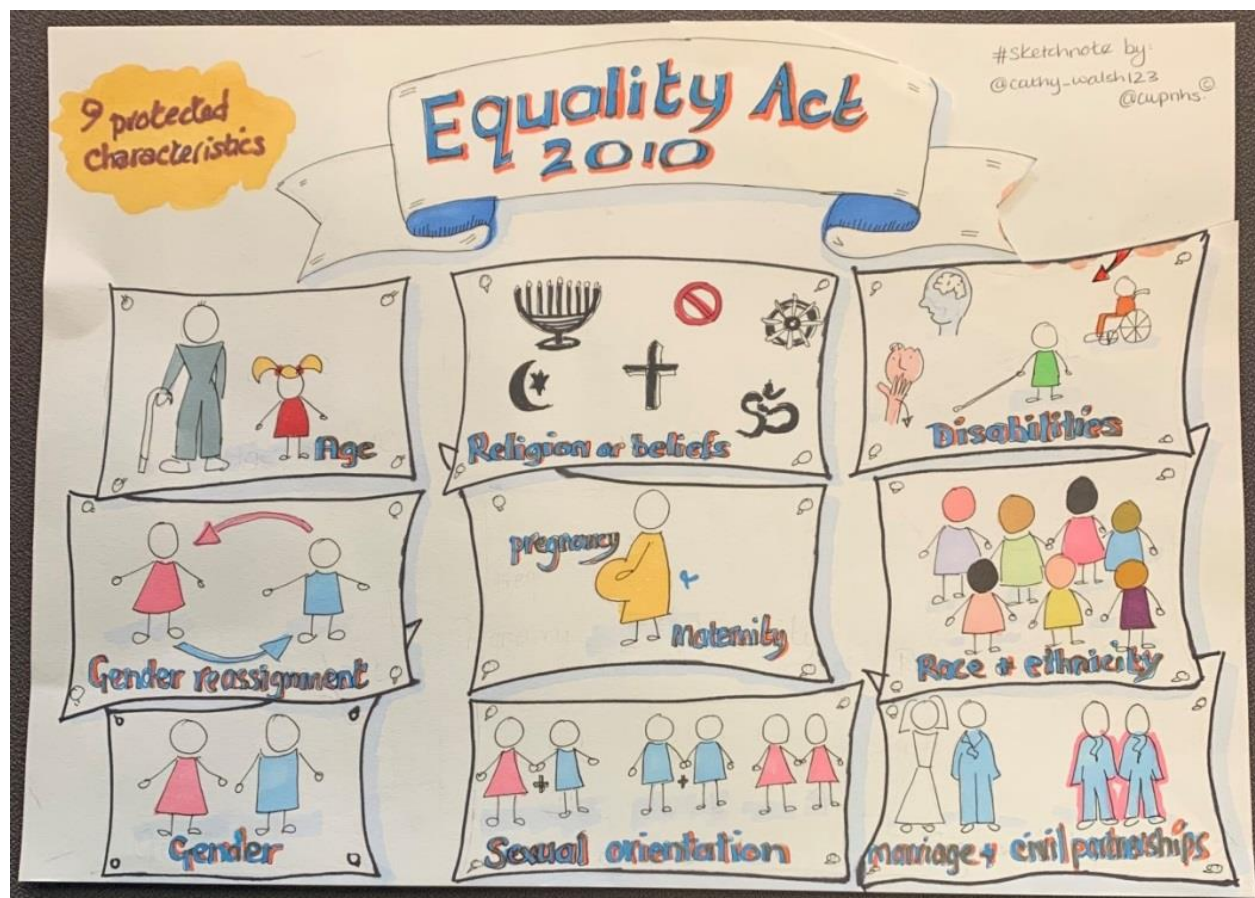 9 protected
characteristics
Equality Act
2010
#sketchnote by:
@cathy_walsh123
@cwpnhs. ©
Age
Religion or beliefs
Disabilities
Gender reassignment
pregnancy
+
Maternity
Race + ethnicity
Gender
+
+
Sexual orientation
marriage + civil partnerships